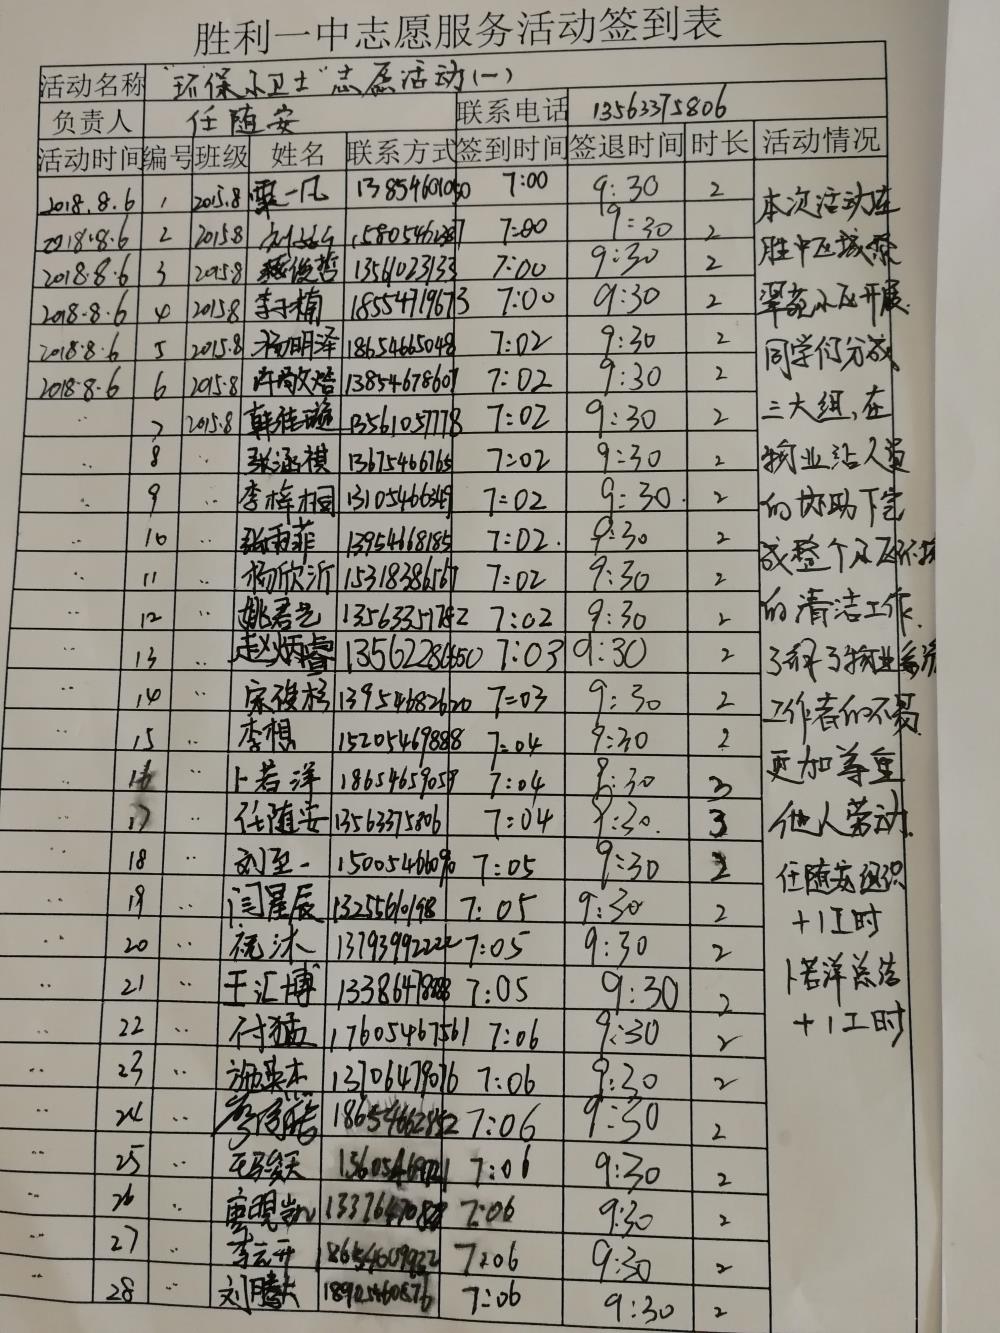 胜利一中志愿服务活动签到表
活动名称 "环保小卫士"志愿活动(一)
负责人 任随安 联系电话 13563375806
活动时间 编号 班级 姓名 联系方式 签到时间 签退时间 时长 活动情况
2018.8.6 1 2015.8 一凡 7:00 9:30 2 本次活动在
2018.8.6 2 2015.8 7:00 9:30 2 胜中
2018.8.6 3 2015.8 俊哲 13561023133 7:00 9:30 2
2018.8.6 4 2015.8 李子楠 18554719673 7:00 9:30 2 开展.
2018.8.6 5 2015.8 杨明泽 18654665048 7:02 9:30 2 同学们分成
2018.8.6 6 2015.8 许 13854678607 7:02 9:30 2
7 2015.8 韩佳璇 13561057778 7:02 9:30 2 三大组,在
8 张涵祺 13675466765 7:02 9:30 2 物业 人员
9 李梓桐 7:02 9:30. 2 的协助下完
10 张雨菲 13954668185 7:02. 9:30 2
11 杨欣沂 15318386567 7:02 9:30 2 成整个小区环
12 姚君 13563351782 7:02 9:30 2 的清洁工作.
13 赵炳睿 13562286650 7:03 9:30 2 了解了物业
14 宋俊杉 13954682620 7:03 9:30 2 工作者的不易
15 李想 15205469888 7:04 9:30 2
16 卜若洋 18654659059 7:04 9:30 3 更加尊重
17 任随安 13563375806 7:04 9:30. 3 他人劳动.
18 刘至一 15005466090 7:05 9:30 2 任随安组织
19 闫星辰 7:05 9:30 2 +1工时
20 祝沐 13793992222 7:05 9:30 2
21 王汇博 7:05 9:30 2 卜若洋总结
22 付猛 17605467561 7:06 9:30 2 +1工时
23 施英杰 13706479076 7:06 9:30 2
24 18654662852 7:06 9:30 2
25 7:06 9:30 2
26 唐晚凯 7:06 9:30 2
27 李云开 18654609922 7:06 9:30 2
28 刘腾 7:06 9:30 2